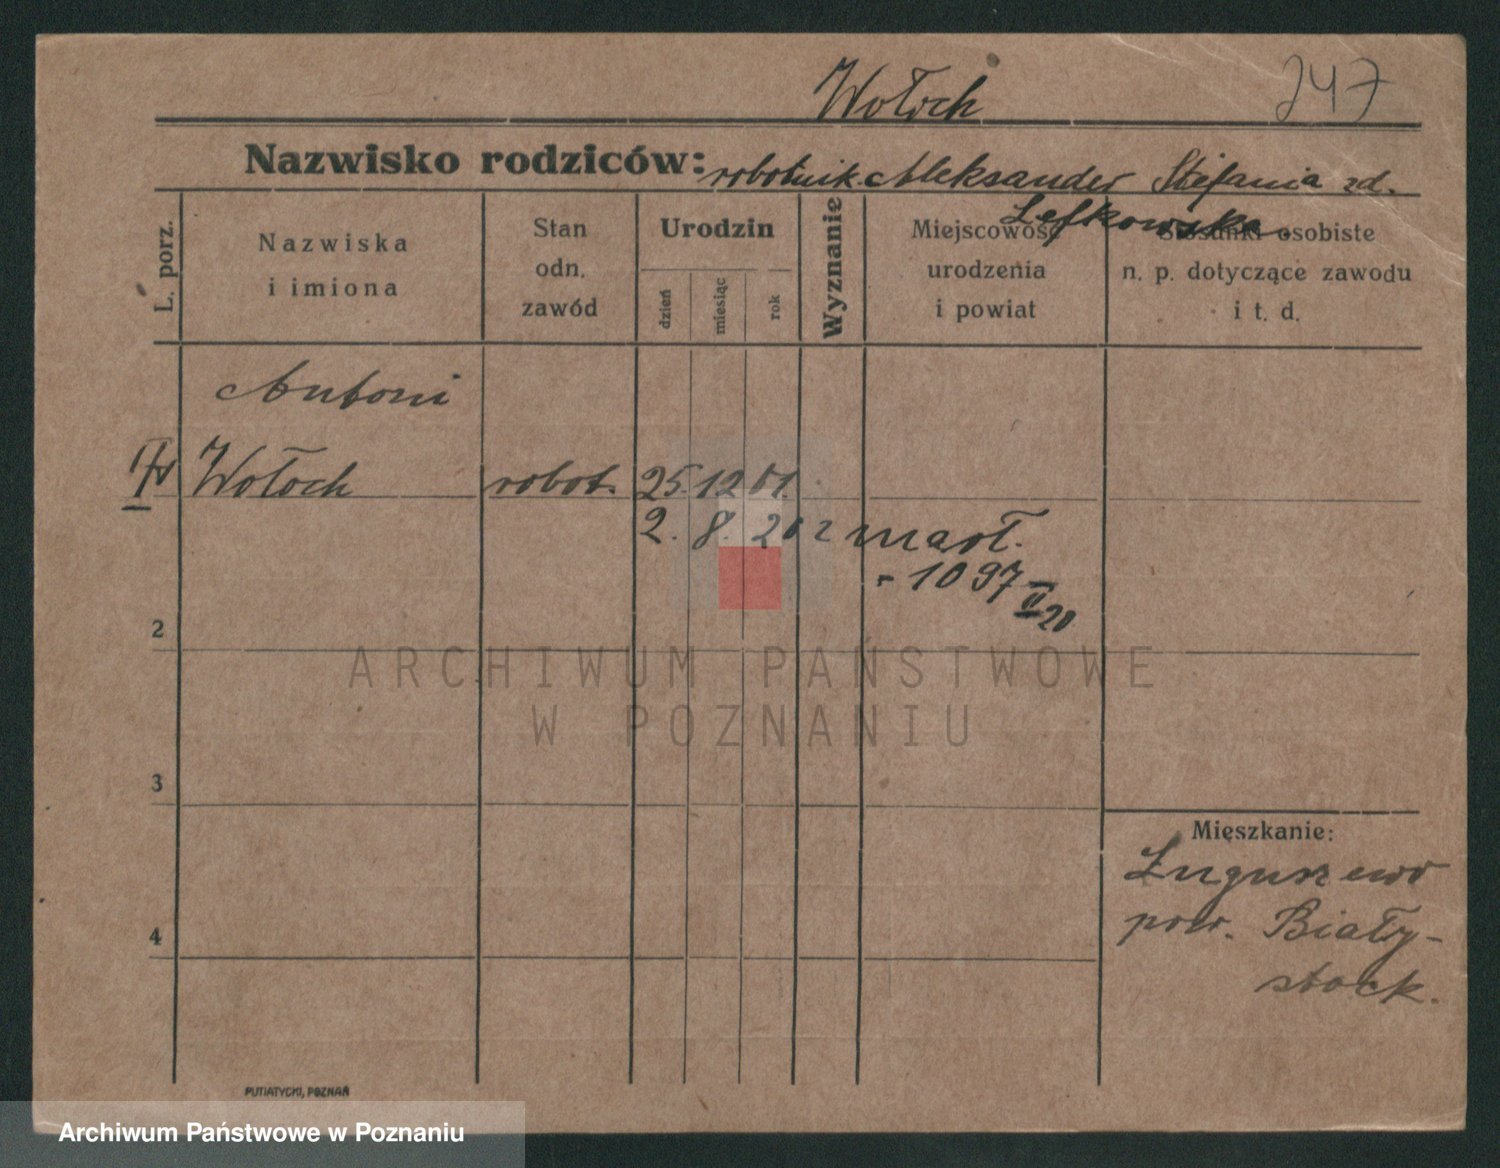 Wołoch
247
Nazwisko rodziców: robotnik Aleksander Stefania zd.
Lefkowska
L. porz.
Nazwiska
i imiona
Stan
odn.
zawód
Urodzin
dzień
miesiąc
rok
Wyznanie
Miejscowość
urodzenia
i powiat
Stosunki osobiste
n. p. dotyczące zawodu
i t. d.
Antoni
Wołoch robot. 25. 12 01.
2. 8. 20 z marł.
- 1097
II 20
2
3
4
Mieszkanie:
Ługuszewo
pow. Biały-
stock.
PUTIATYCKI, POZNAŃ
ARCHIWUM PAŃSTWOWE
W POZNANIU
Archiwum Państwowe w Poznaniu